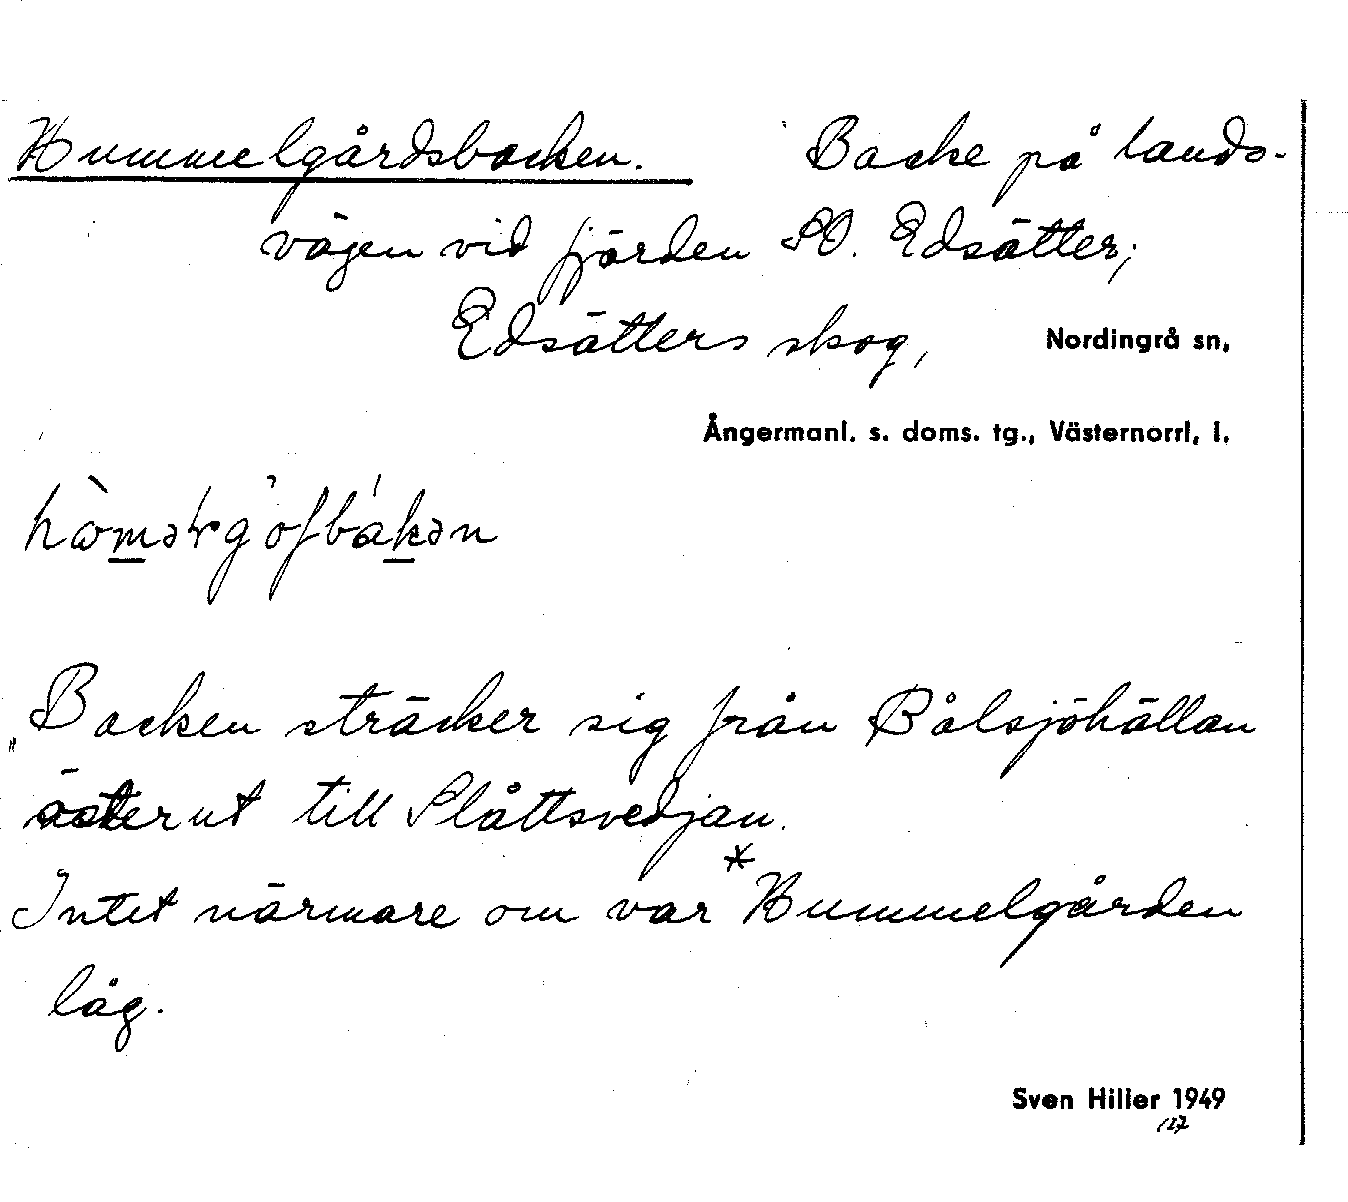 Hummelgårdsbacken. Backe på lands-
vägen vid fjärden SO. Edsätter;
Edsätters skog, Nordingrå sn,
Ångermanl. s. doms. tg., Västernorrl, l.
"Backen sträcker sig från Bålsjöhällan
österut till Slåttsvedjan.
Intet närmare om var *Hummelgården
låg.
Sven Hilier 1949
127